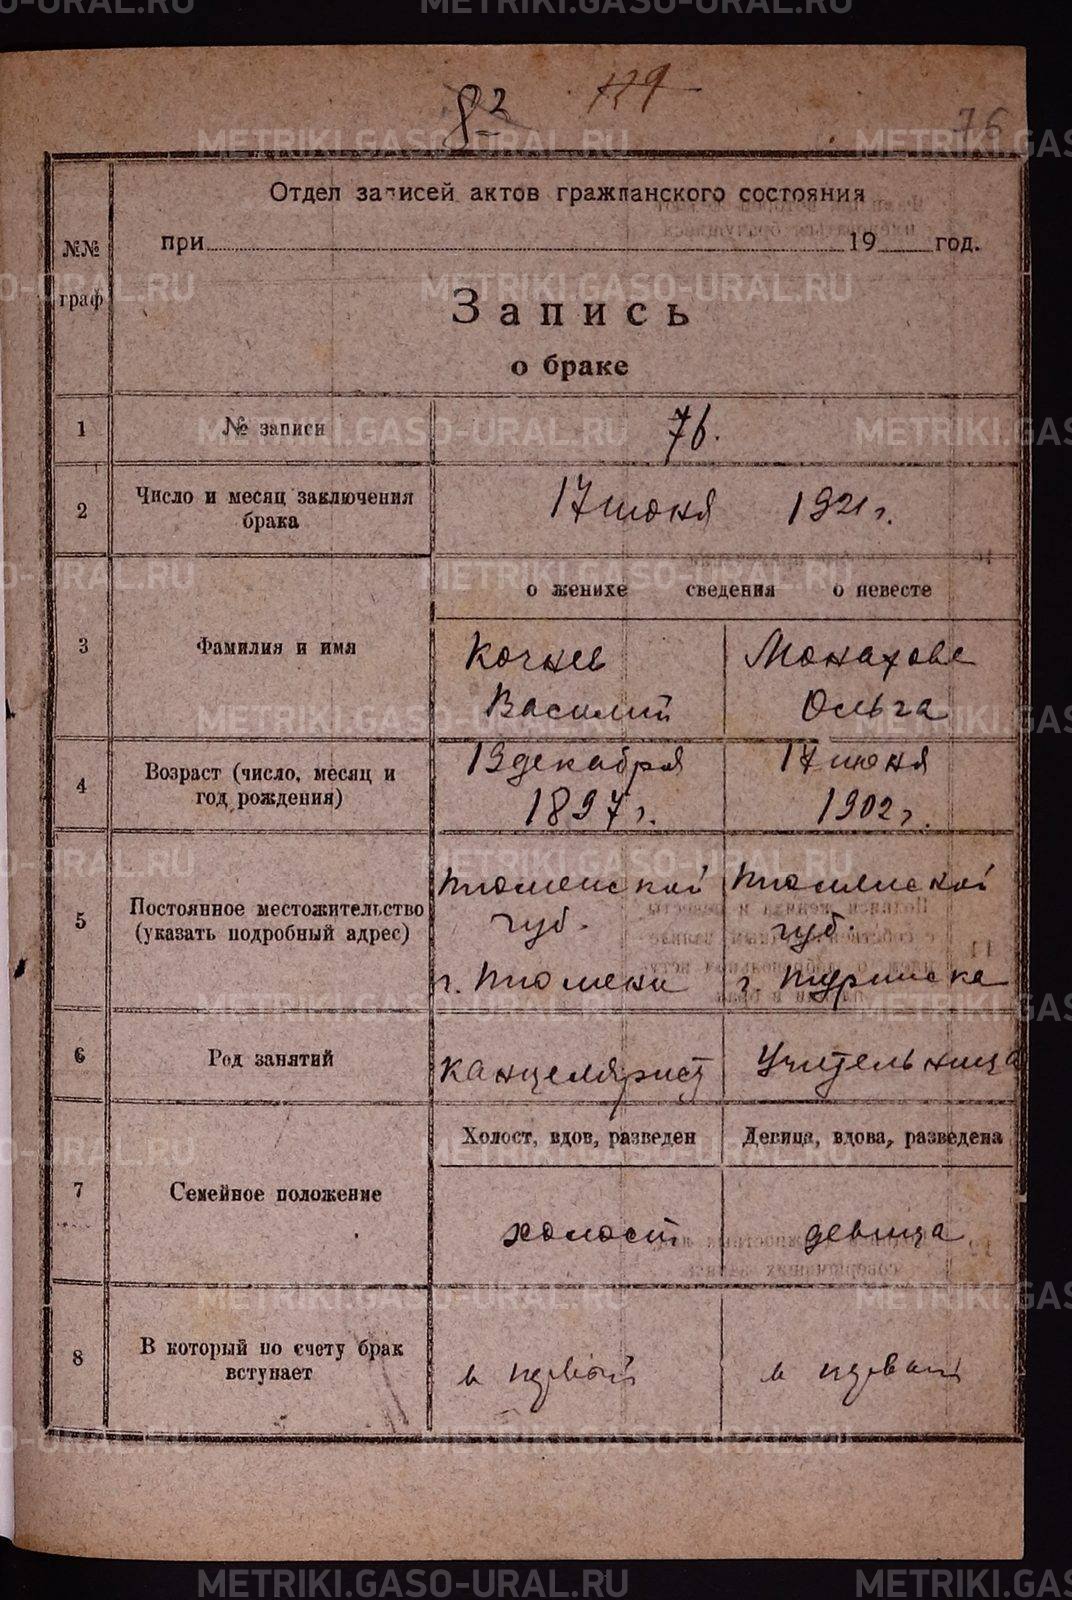 METRIKI.GASO-URAL.RU
82
129
76
№№ граф
Отдел записей актов гражданского состояния
при 19 год.
Запись
о браке
1 № записи 76.
2 Число и месяц заключения брака 17 июня 1921 г.
о женихе сведения о невесте
3 Фамилия и имя
Кочнев Монахова
Василий Ольга
4 Возраст (число, месяц и год рождения)
13 декабря 17 июня
1897 г. 1902 г.
5 Постоянное местожительство (указать подробный адрес)
Тюменской Тюменской
губ. губ.
г. Тюмени г. Туринска
6 Род занятий канцелярист Учительница
Холост, вдов, разведен Девица, вдова, разведена
7 Семейное положение холост девица
8 В который по счету брак вступает в первый в первый